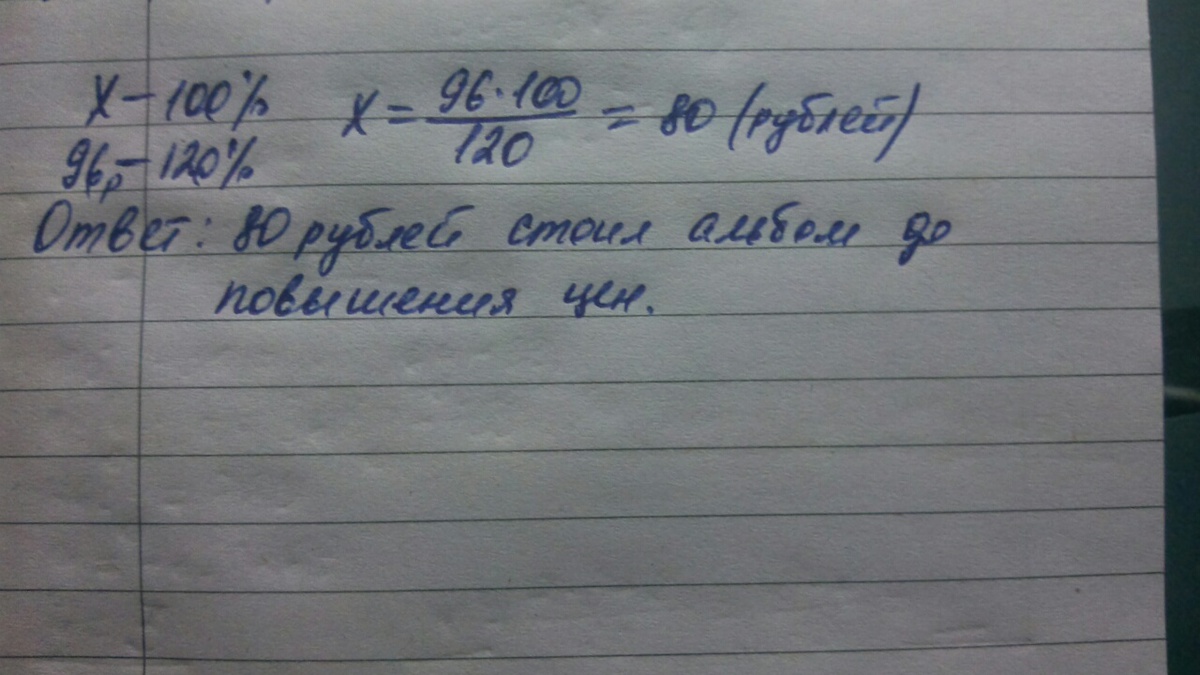 X – 100% X = 96·100 / 120 = 80 (рублей)
96р – 120%
Ответ: 80 рублей стоил альбом до
повышения цен.